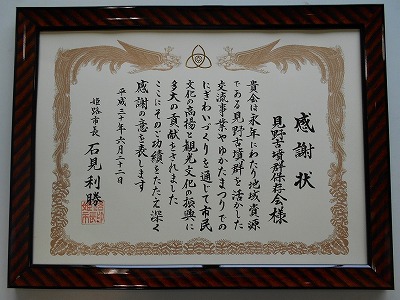 感謝状
見野古墳群保存会様
貴会は永年にわたり地域資源
である見野古墳群を活かした
交流事業やゆかたまつりでの
にぎわいづくりを通じて市民
文化の高揚と観光文化の振興に
多大の貢献をされました
ここにそのご功績をたたえ深く
感謝の意を表します
平成三十年六月二十二日
姫路市長 石見利勝